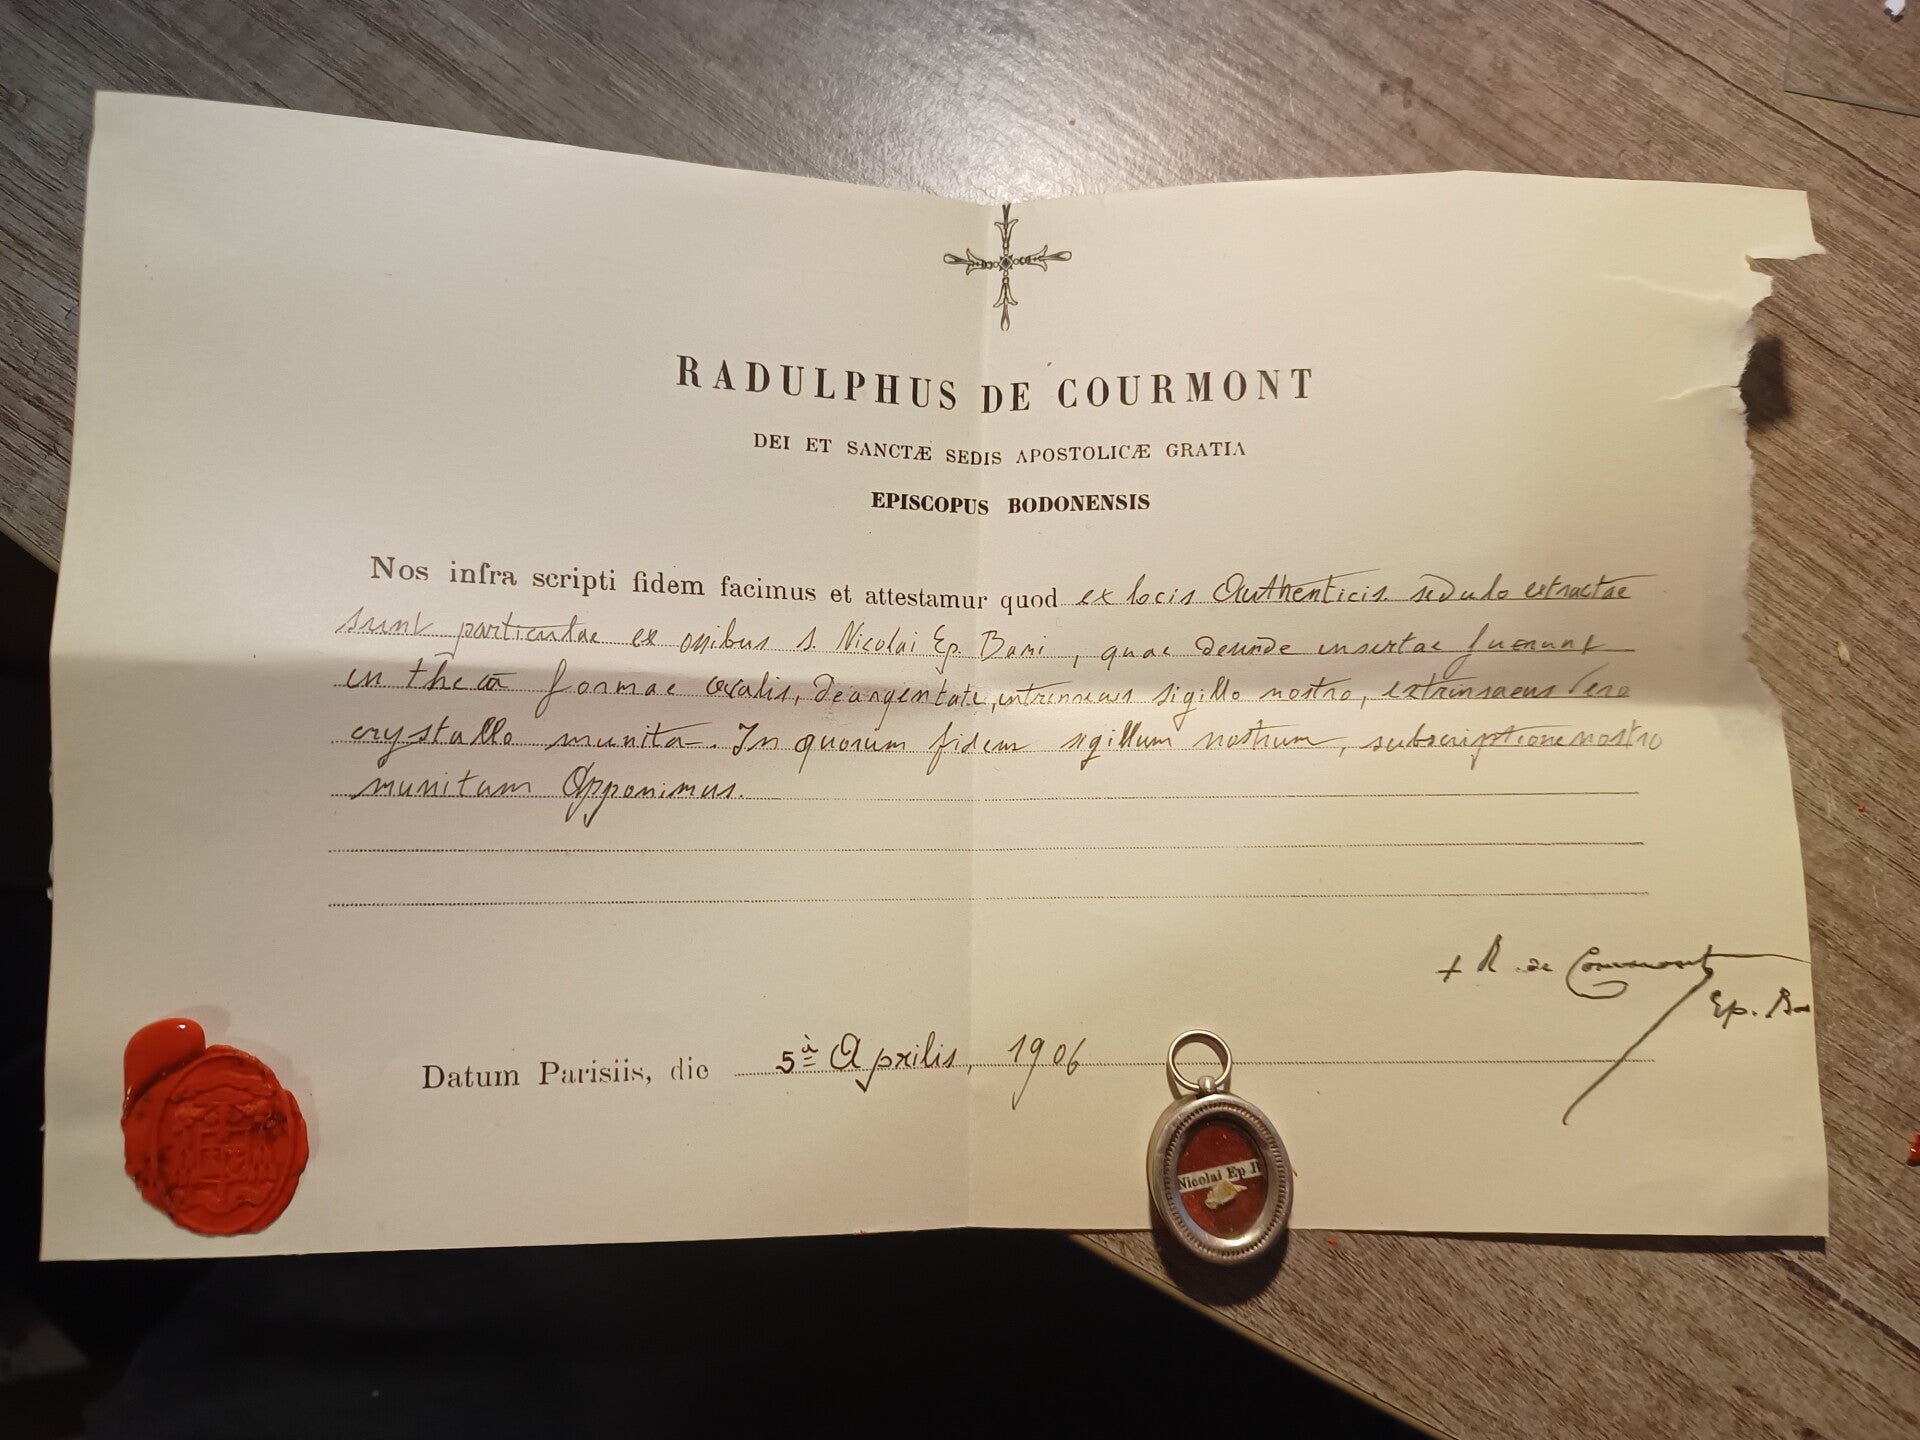 RADULPHUS DE COURMONT
DEI ET SANCTÆ SEDIS APOSTOLICÆ GRATIA
EPISCOPUS BODONENSIS
Nos infra scripti fidem facimus et attestamur quod ex locis Authenticis sedulo extractae
sunt particulae ex ossibus s. Nicolai Ep. Bari, quae deinde insertae fuerunt
in theca formae ovalis, deargentate, intrinsecus sigillo nostro, extrinsaecus vero
crystallo munita. In quorum fidem sigillum nostrum, subscriptione nostro
munitum Apponimus.
+ R. de Courmont
Ep. Bo
Datum Parisiis, die 5à Aprilis, 1906
Nicolai Ep